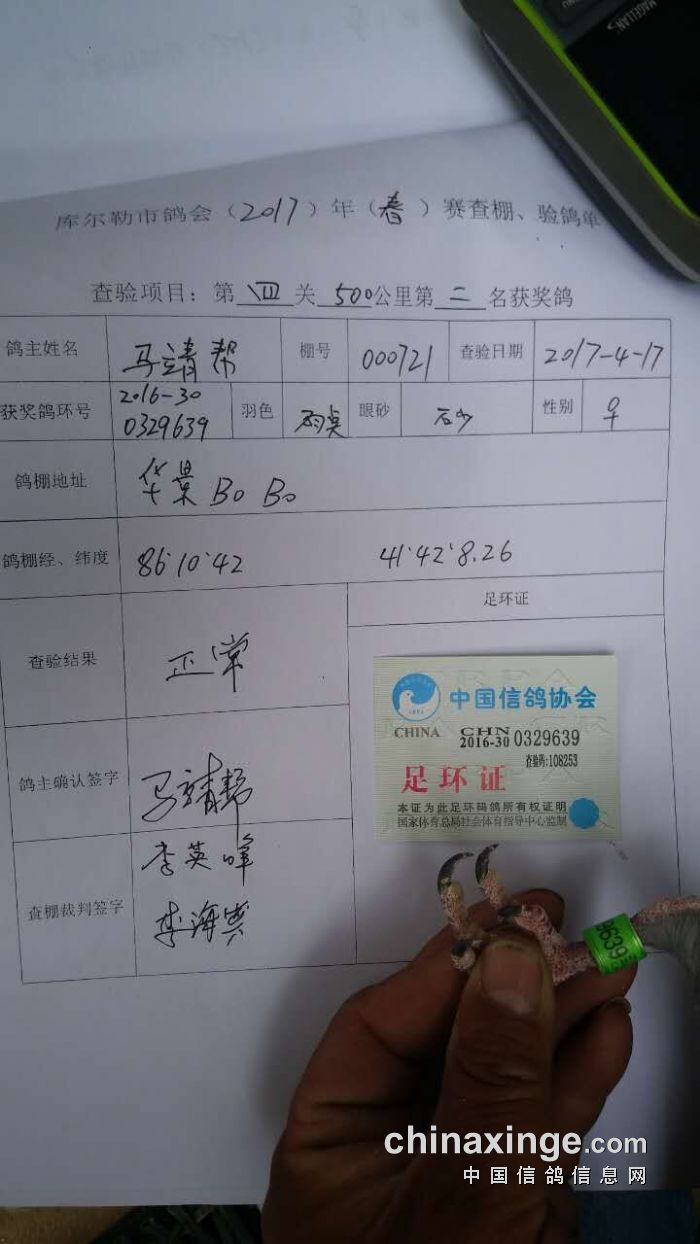 MAGELLAN
库尔勒市鸽会（2017）年（春）赛查棚、验鸽单
查验项目：第 四 关 500公里第 二 名获奖鸽
鸽主姓名 马靖帮 棚号 000721 查验日期 2017-4-17
获奖鸽环号 2016-30 0329639 羽色 雨点 眼砂 石少 性别 ♀
鸽棚地址 华景 BO BO
鸽棚经、纬度 86·10·42 41·42·8.26
足环证
查验结果 正常
中国信鸽协会
CHINA CHN
2016-30 0329639
查验码:108253
足环证
本证为此足环码鸽所有权证明
国家体育总局社会体育指导中心监制
鸽主确认签字 马靖帮
查棚裁判签字 李英 李海
9639
chinaxinge.com
中国信鸽信息网